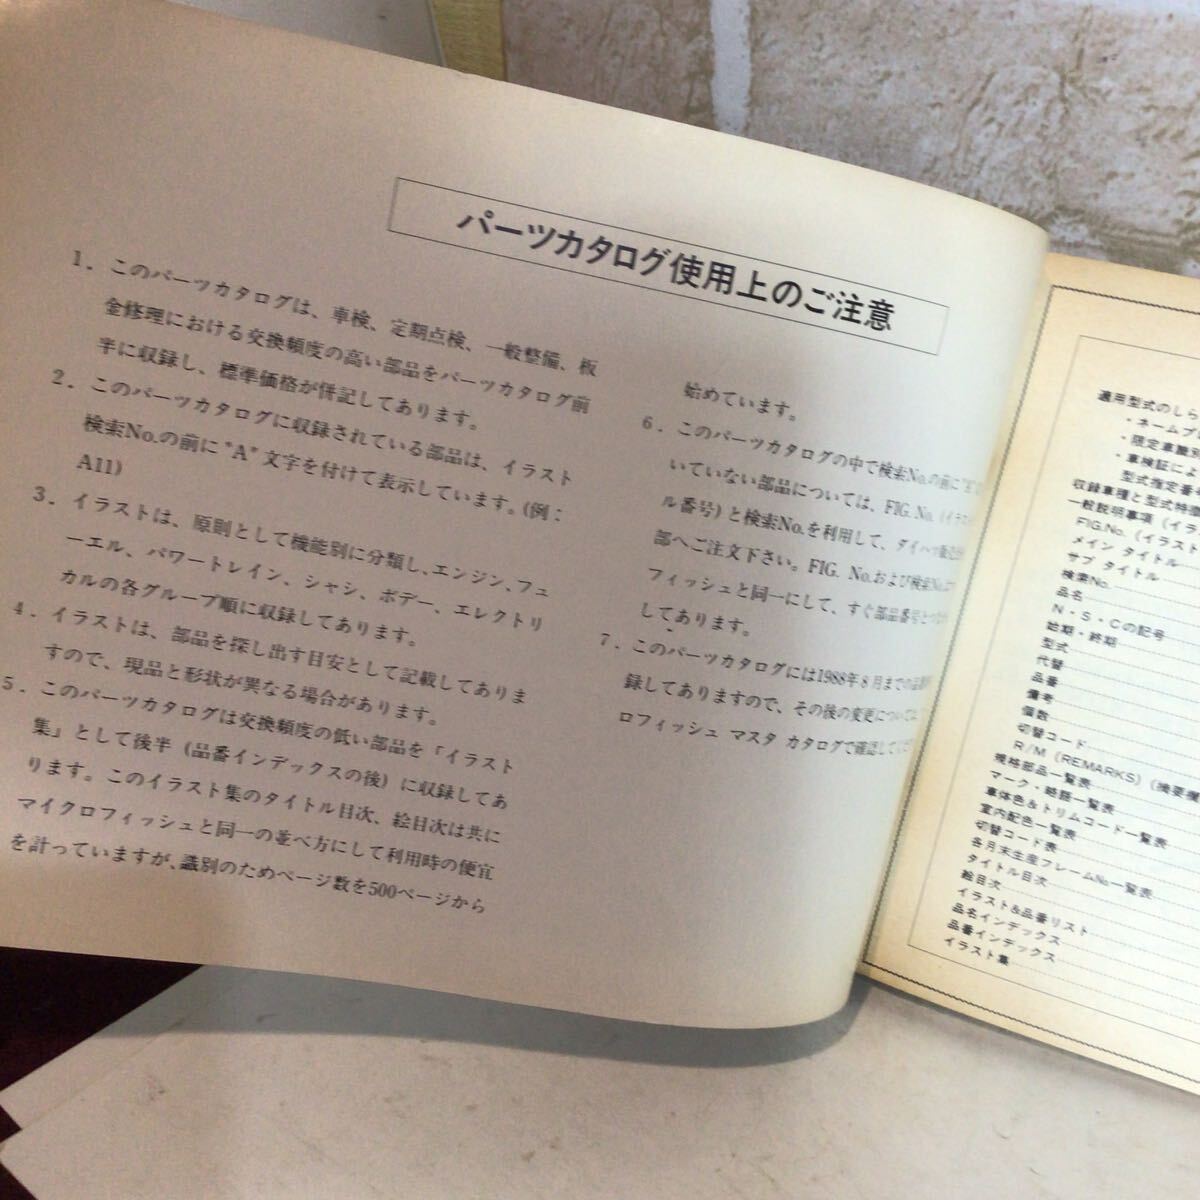 パーツカタログ使用上のご注意
1．このパーツカタログは、車検、定期点検、一般整備、板
金修理における交換頻度の高い部品をパーツカタログ前
半に収録し、標準価格が併記してあります。
2．このパーツカタログに収録されている部品は、イラスト
検索No.の前に"A"文字を付けて表示しています。(例：
A11)
3．イラストは、原則として機能別に分類し、エンジン、フュ
ーエル、パワートレイン、シャシ、ボデー、エレクトリ
カルの各グループ順に収録してあります。
4．イラストは、部品を探し出す目安として記載してありま
すので、現品と形状が異なる場合があります。
5．このパーツカタログは交換頻度の低い部品を「イラスト
集」として後半（品番インデックスの後）に収録してあ
ります。このイラスト集のタイトル目次、絵目次は共に
マイクロフィッシュと同一の並べ方にして利用時の便宜
を計っていますが、識別のためページ数を500ページから
始めています。
6．このパーツカタログの中で検索No.の前に
いていない部品については、FIG. No.(イラス
ル番号)と検索No.を利用して、ダイハツ販売
部へご注文下さい。FIG. No.および検索No.
フィッシュと同一にして、すぐ部品番号と
してあります。
7．このパーツカタログには1988年8月までの
録してありますので、その後の変更については
ロフィッシュ マスタ カタログで確認して
適用型式のしら
・ネームプ
・限定車識別
・車検証によ
型式指定番
収録車種と型式特徴
一般説明事項（イラ
FIG.No.（イラスト
メイン タイトル
サブ タイトル
検索No.
品名
N・S・Cの記号
始期・終期
型式
代替
品番
備考
個数
切替コード
R/M (REMARKS)（摘要欄
規格部品一覧表
マーク・略語一覧表
車体色＆トリムコード一覧表
室内配色一覧表
切替コード表
各月末生産フレームNo.一覧表
タイトル目次
絵目次
イラスト＆品番リスト
品名インデックス
品番インデックス
イラスト集